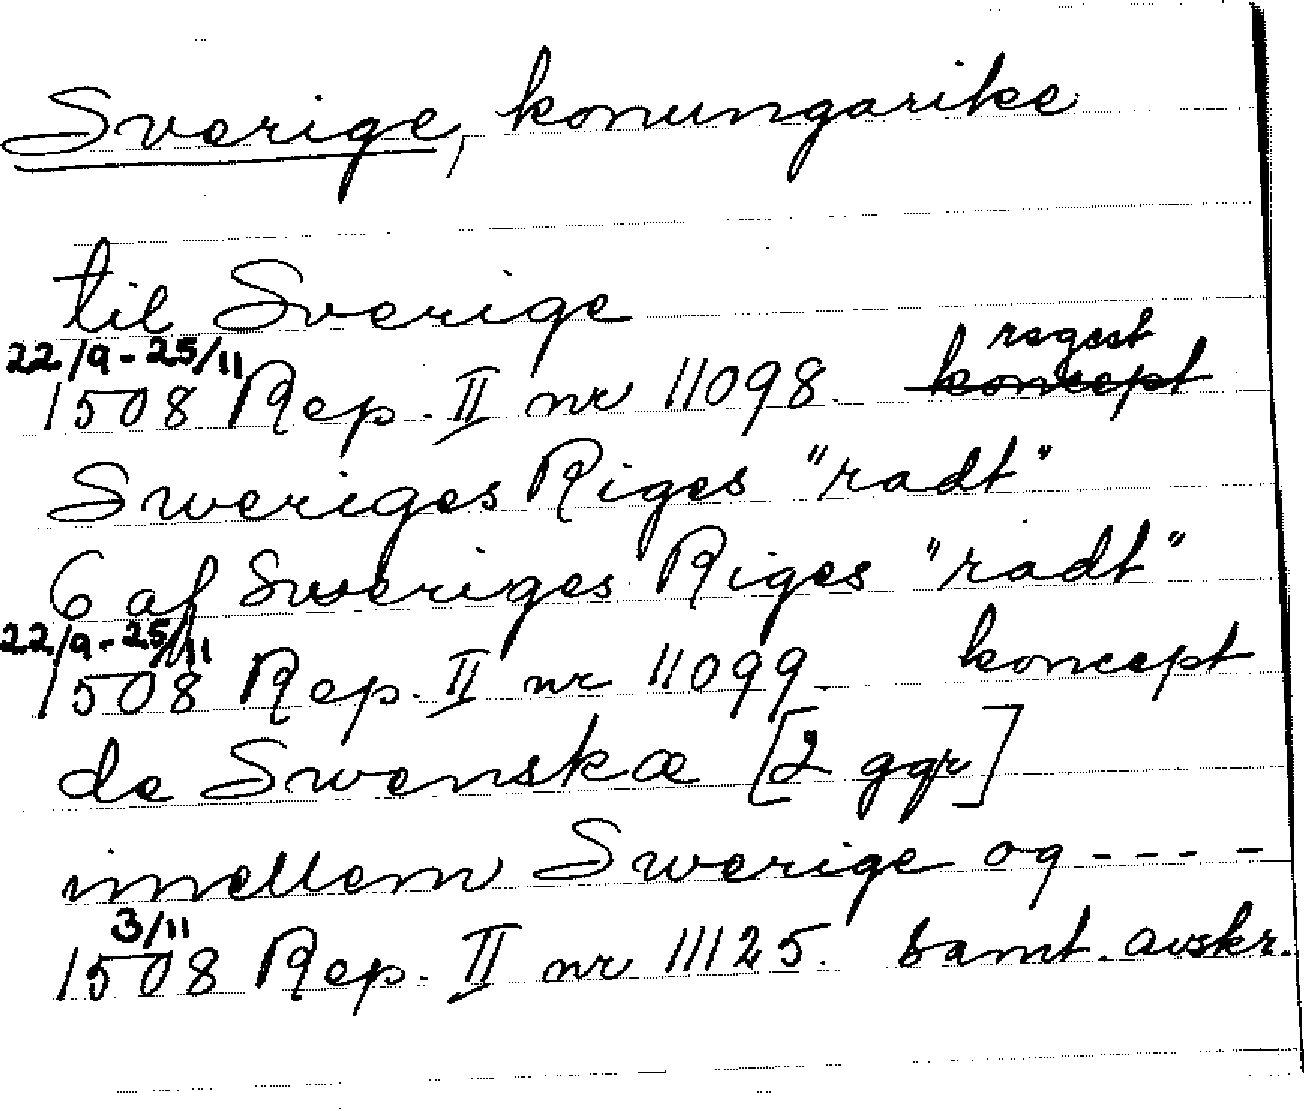 Sverige, konungarike
til Sverige
22/9-25/11 regest
1508 Rep. II nr 11098. koncept
Sweriges Riges "radt"
6 af Sweriges Riges "radt"
22/9-25/11
1508 Rep. II nr 11099. koncept
de Swenskæ [2 ggr]
imellem Swerige og - - - -
3/11
1508 Rep. II nr 11125. samt. avskr.